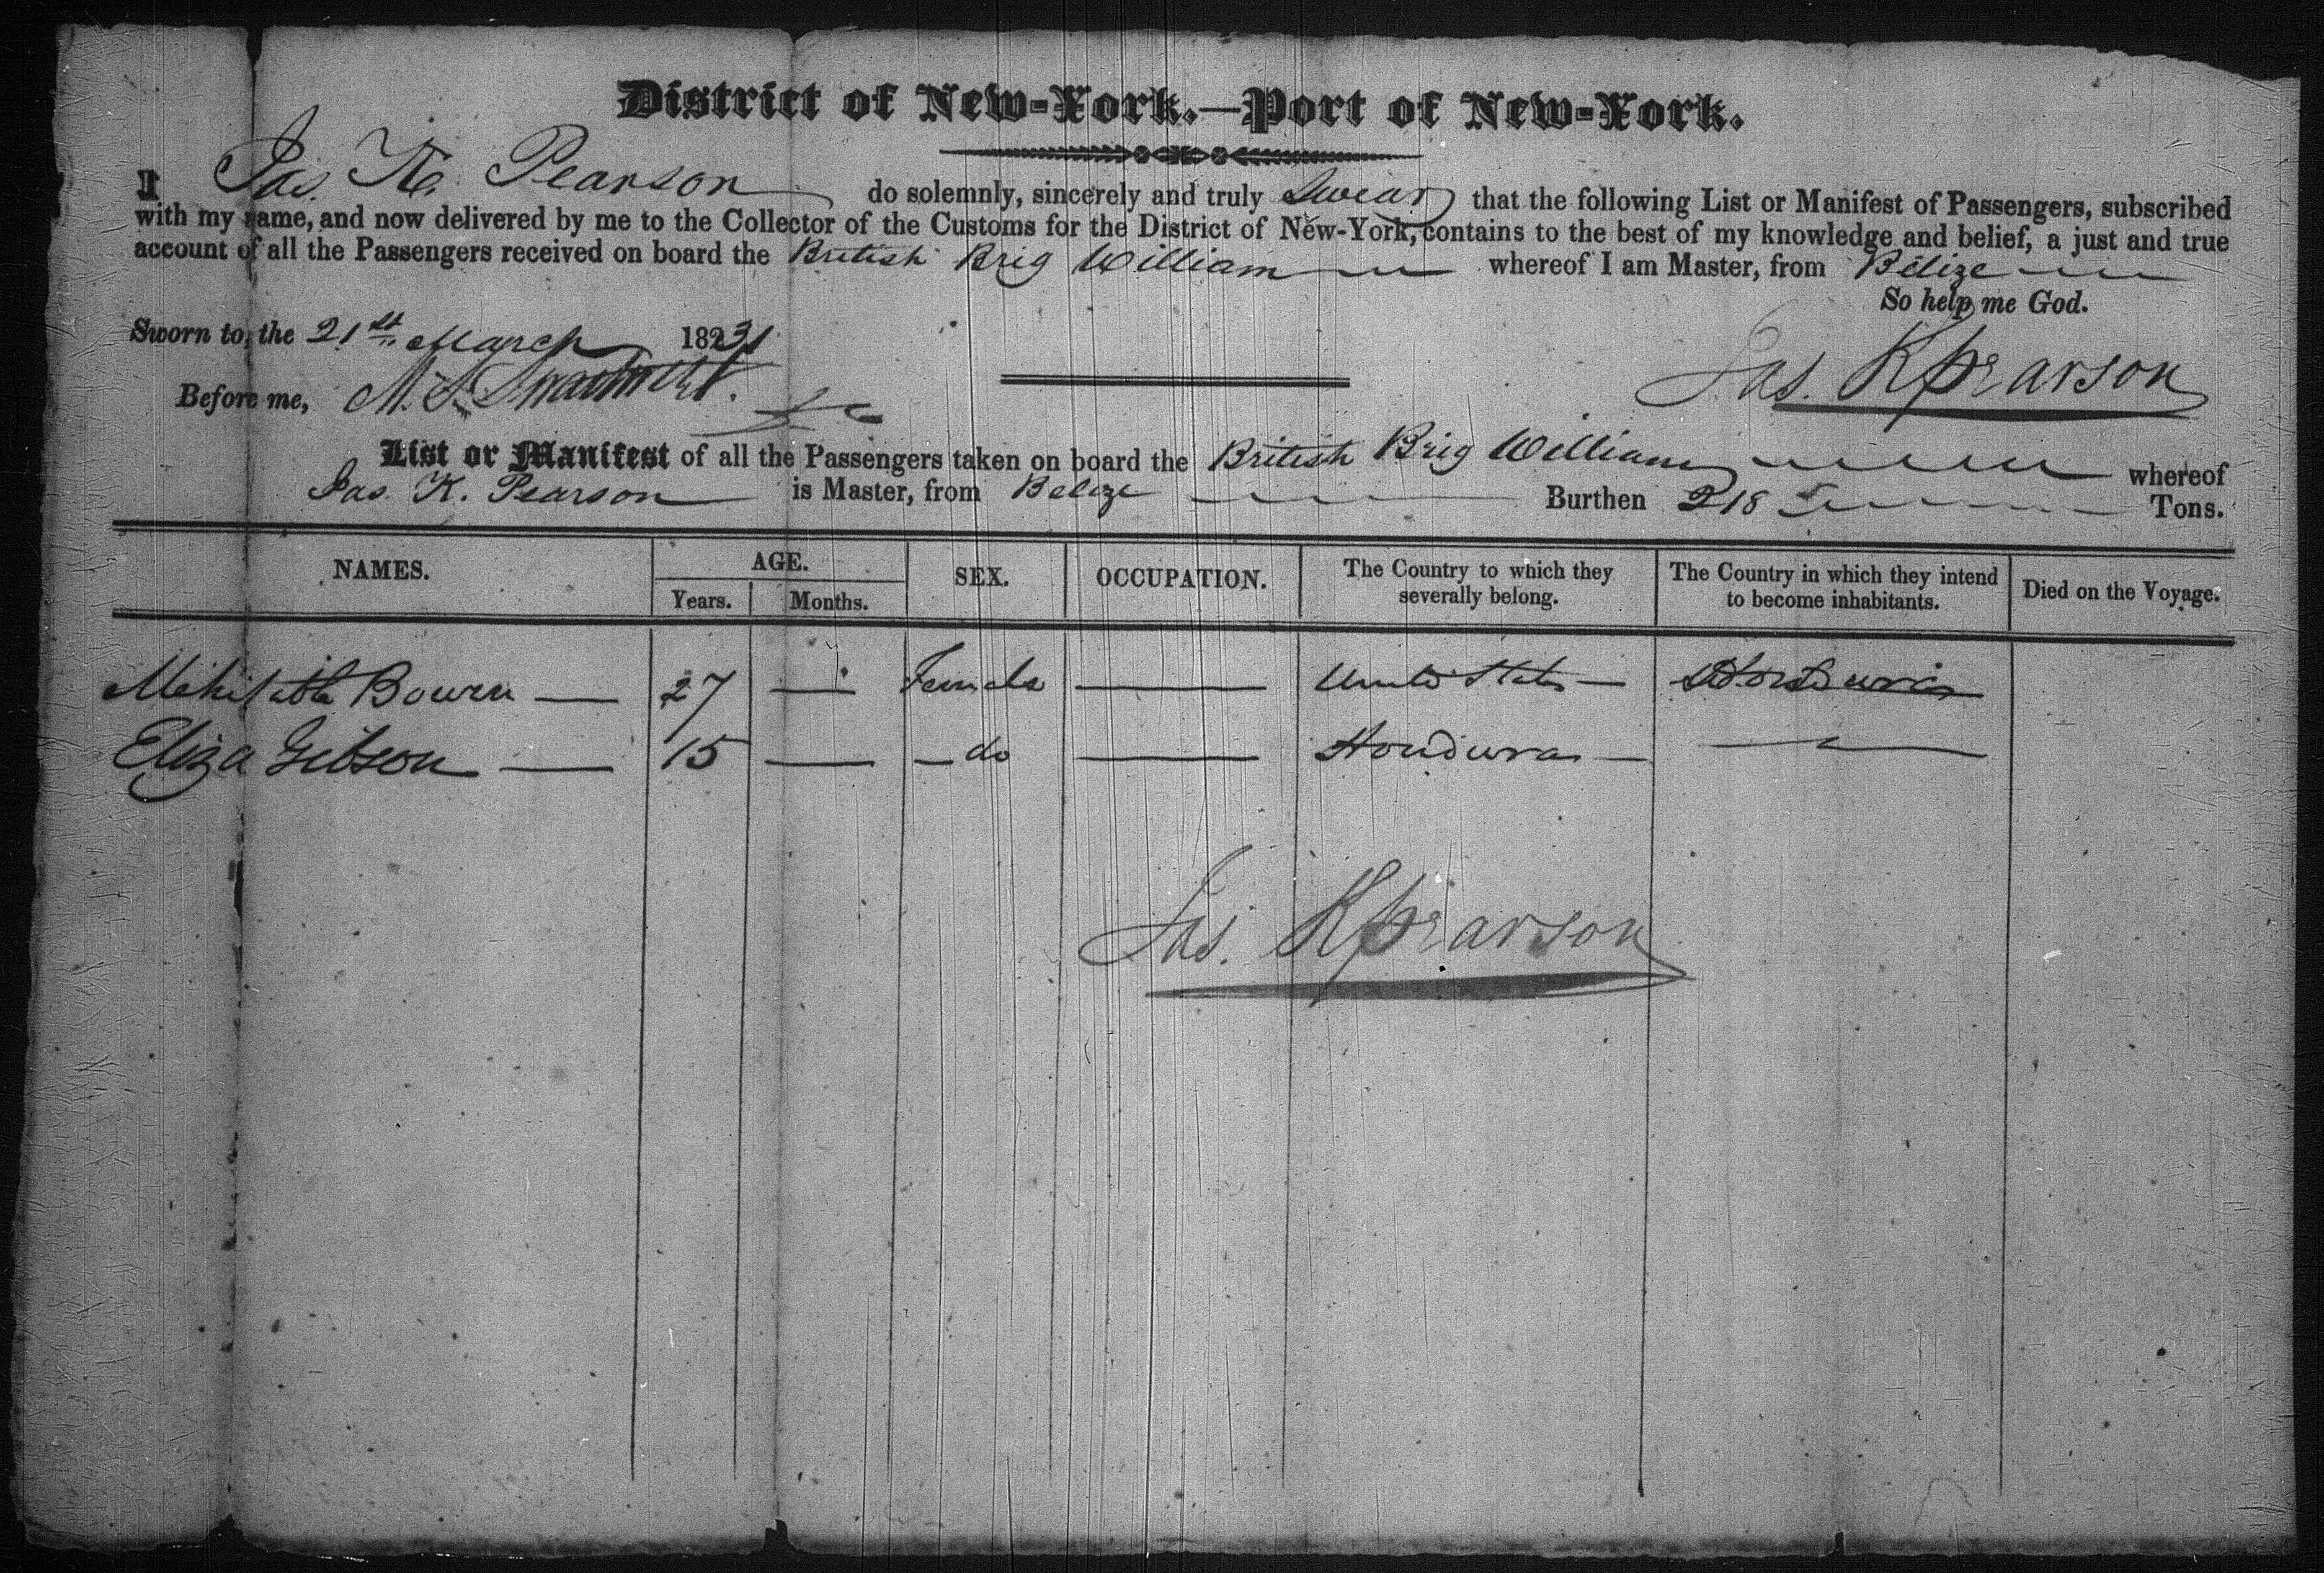 District of New-York.—Port of New-York.
I Jas. K. Pearson do solemnly, sincerely and truly Swear that the following List or Manifest of Passengers, subscribed
with my name, and now delivered by me to the Collector of the Customs for the District of New-York, contains to the best of my knowledge and belief, a just and true
account of all the Passengers received on board the British Brig William whereof I am Master, from Belize
So help me God.
Sworn to, the 21st March 1831
Jas. K Pearson
Before me,
List or Manifest of all the Passengers taken on board the British Brig William whereof
Jas. K. Pearson is Master, from Belize Burthen 218 Tons.
NAMES. AGE. Years. Months. SEX. OCCUPATION. The Country to which they severally belong. The Country in which they intend to become inhabitants. Died on the Voyage.
Mehitable Bowen — 27 — Female — United States — Honduras
Eliza Gibson — 15 — do — Honduras — —
Jas. K Pearson